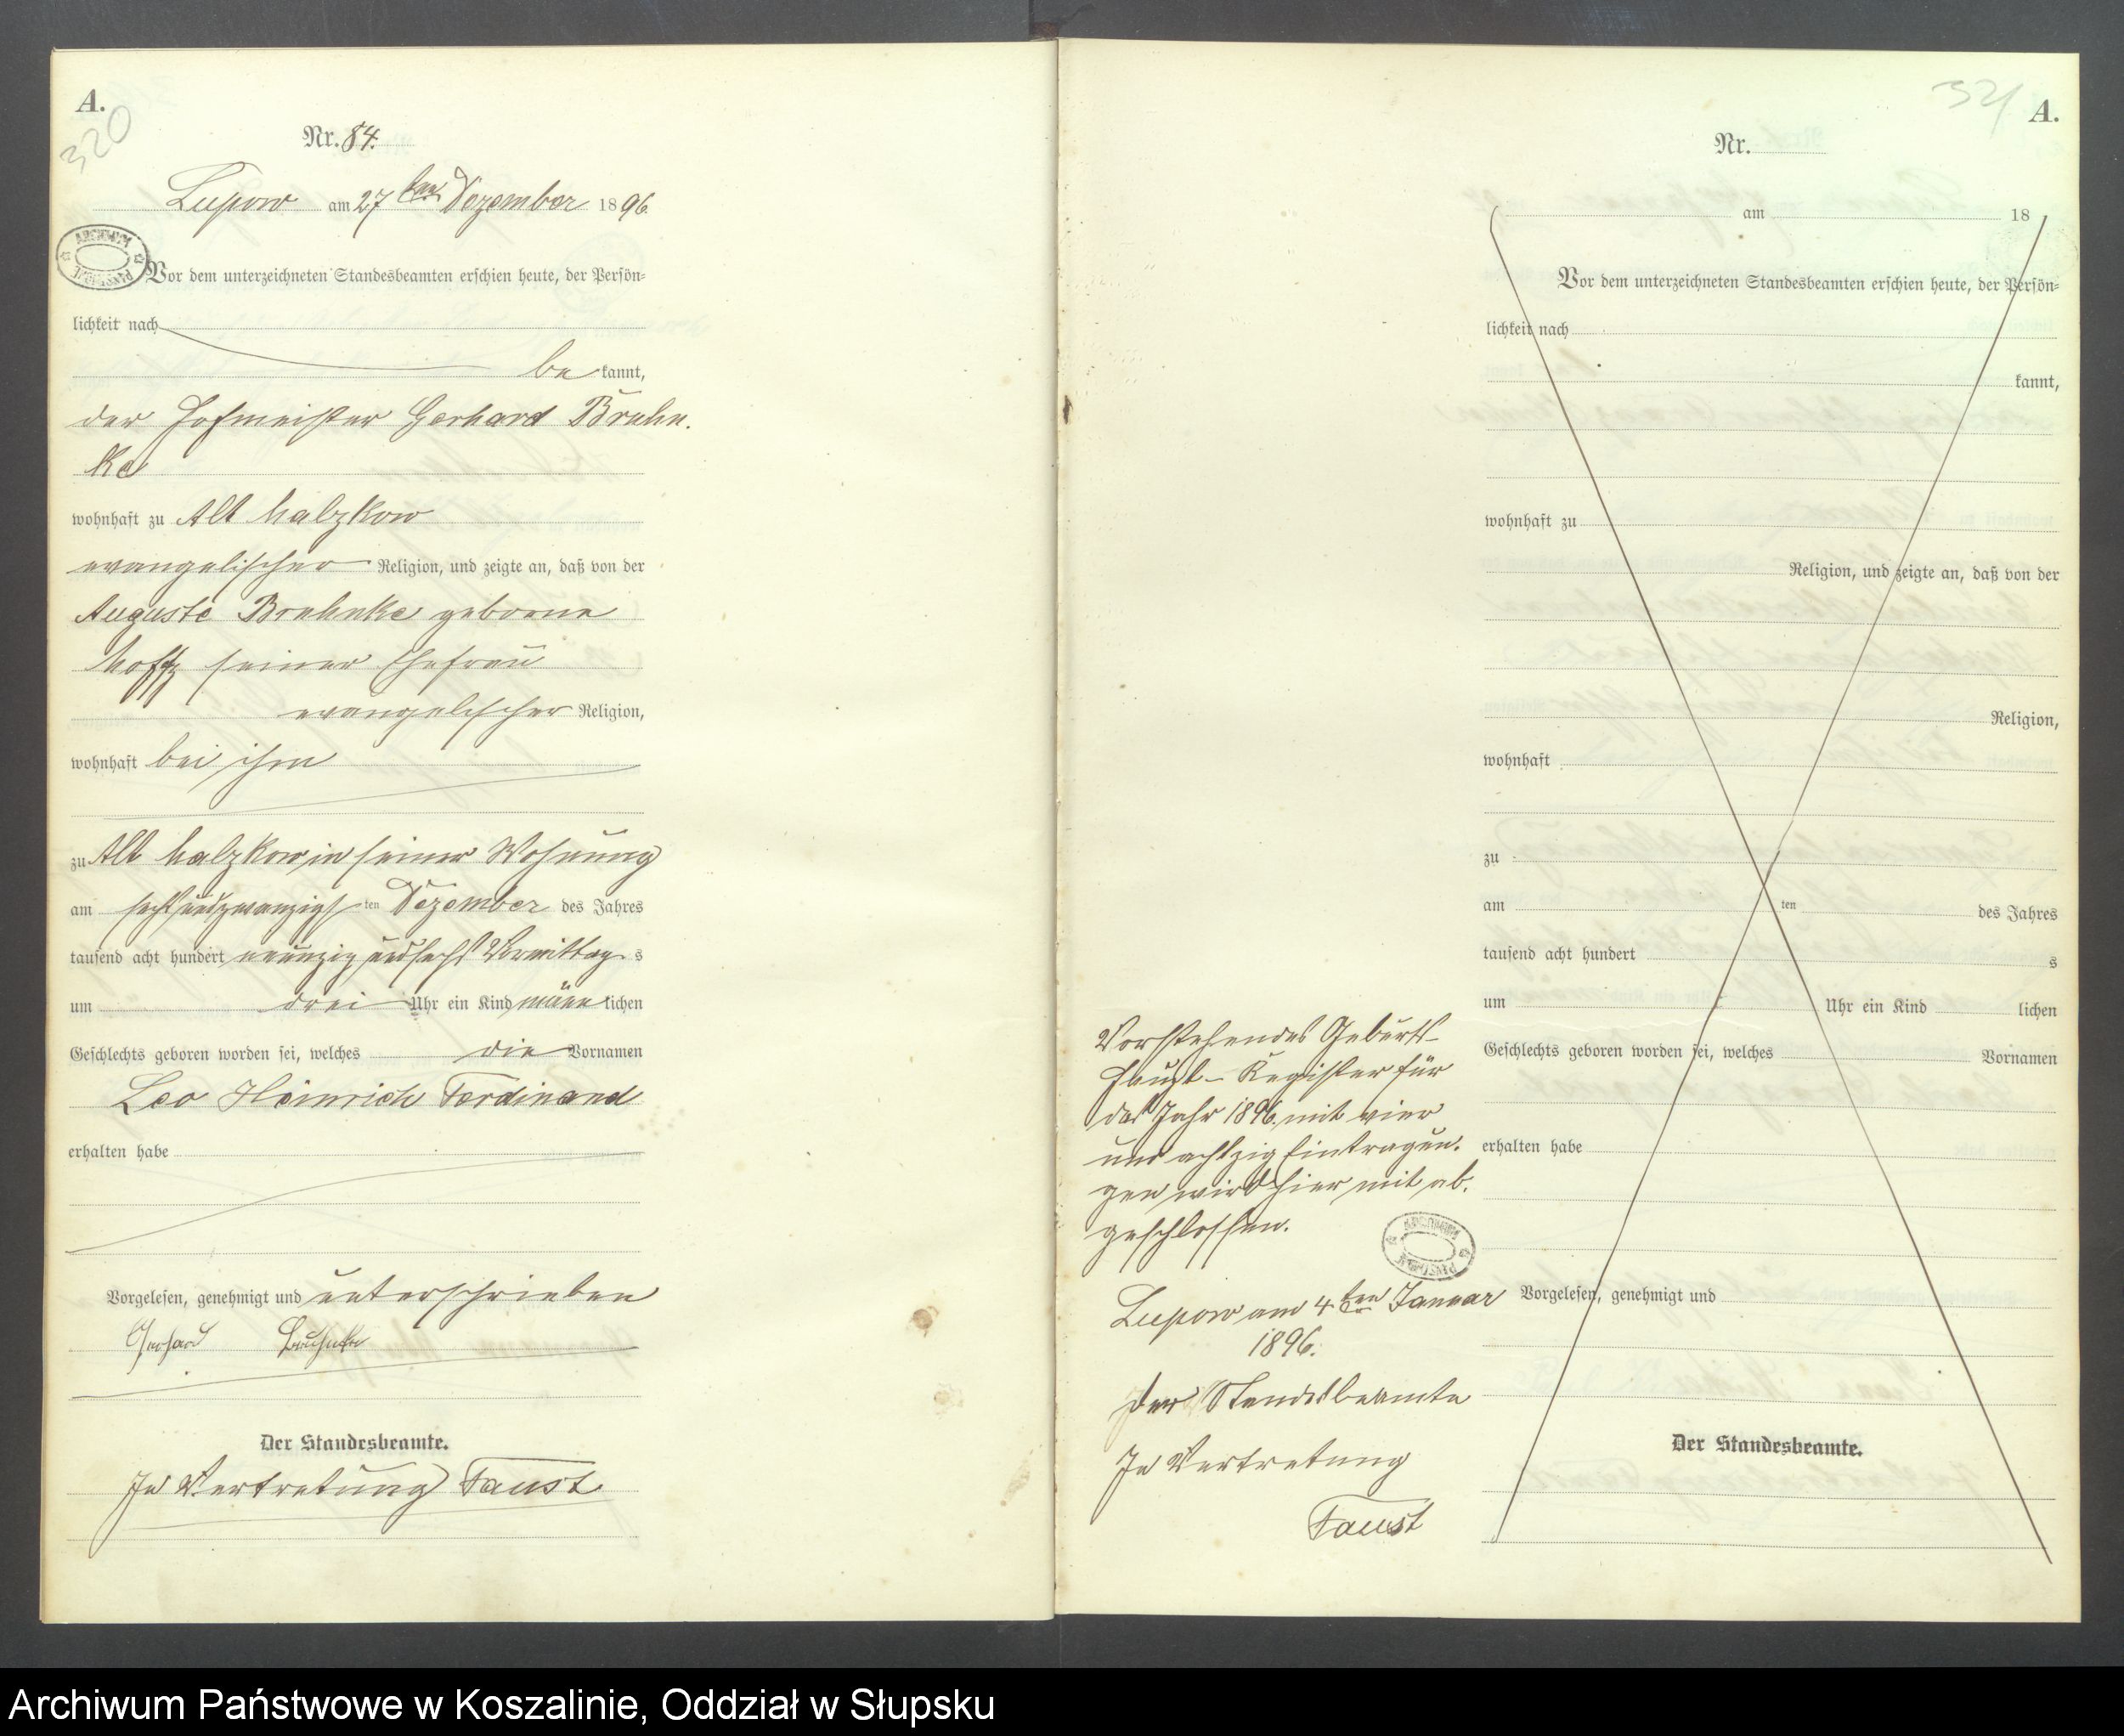 A.
320
Nr. 84.
Lupow am 27ten Dezember 1896.
ARCHIWUM
Vor dem unterzeichneten Standesbeamten erschien heute, der Persön-
lichkeit nach
be kannt,
der Hofmeister Gerhard Bruhn.
ke
wohnhaft zu Alt Malzkow
evangelischer Religion, und zeigte an, daß von der
Auguste Bruhnke geborene
seiner Ehefrau
evangelischer Religion,
wohnhaft bei ihm
zu Alt Malzkow in seiner Wohnung
am sechsundzwanzigsten Dezember des Jahres
tausend acht hundert neunzig und sechs Vormittags
um drei Uhr ein Kind männlichen
Geschlechts geboren worden sei, welches die Vornamen
Leo Heinrich Ferdinand
erhalten habe
Vorgelesen, genehmigt und unterschrieben
Gerhard Bruhnke
Der Standesbeamte.
In Vertretung Faust.
321
A.
Nr.
am 18
Vor dem unterzeichneten Standesbeamten erschien heute, der Persön-
lichkeit nach
kannt,
wohnhaft zu
Religion, und zeigte an, daß von der
Religion,
wohnhaft
zu
am ten des Jahres
tausend acht hundert s
um Uhr ein Kind lichen
Geschlechts geboren worden sei, welches Vornamen
erhalten habe
Vorgelesen, genehmigt und
Der Standesbeamte.
Vorstehendes Geburts-
Haupt-Register für
das Jahr 1896 mit vier
und achtzig Eintragun.
gen wird hier mit ab.
geschlossen.
ARCHIWUM
Lupow am 4ten Januar
1896.
Der Standesbeamte
In Vertretung
Faust
Archiwum Państwowe w Koszalinie, Oddział w Słupsku